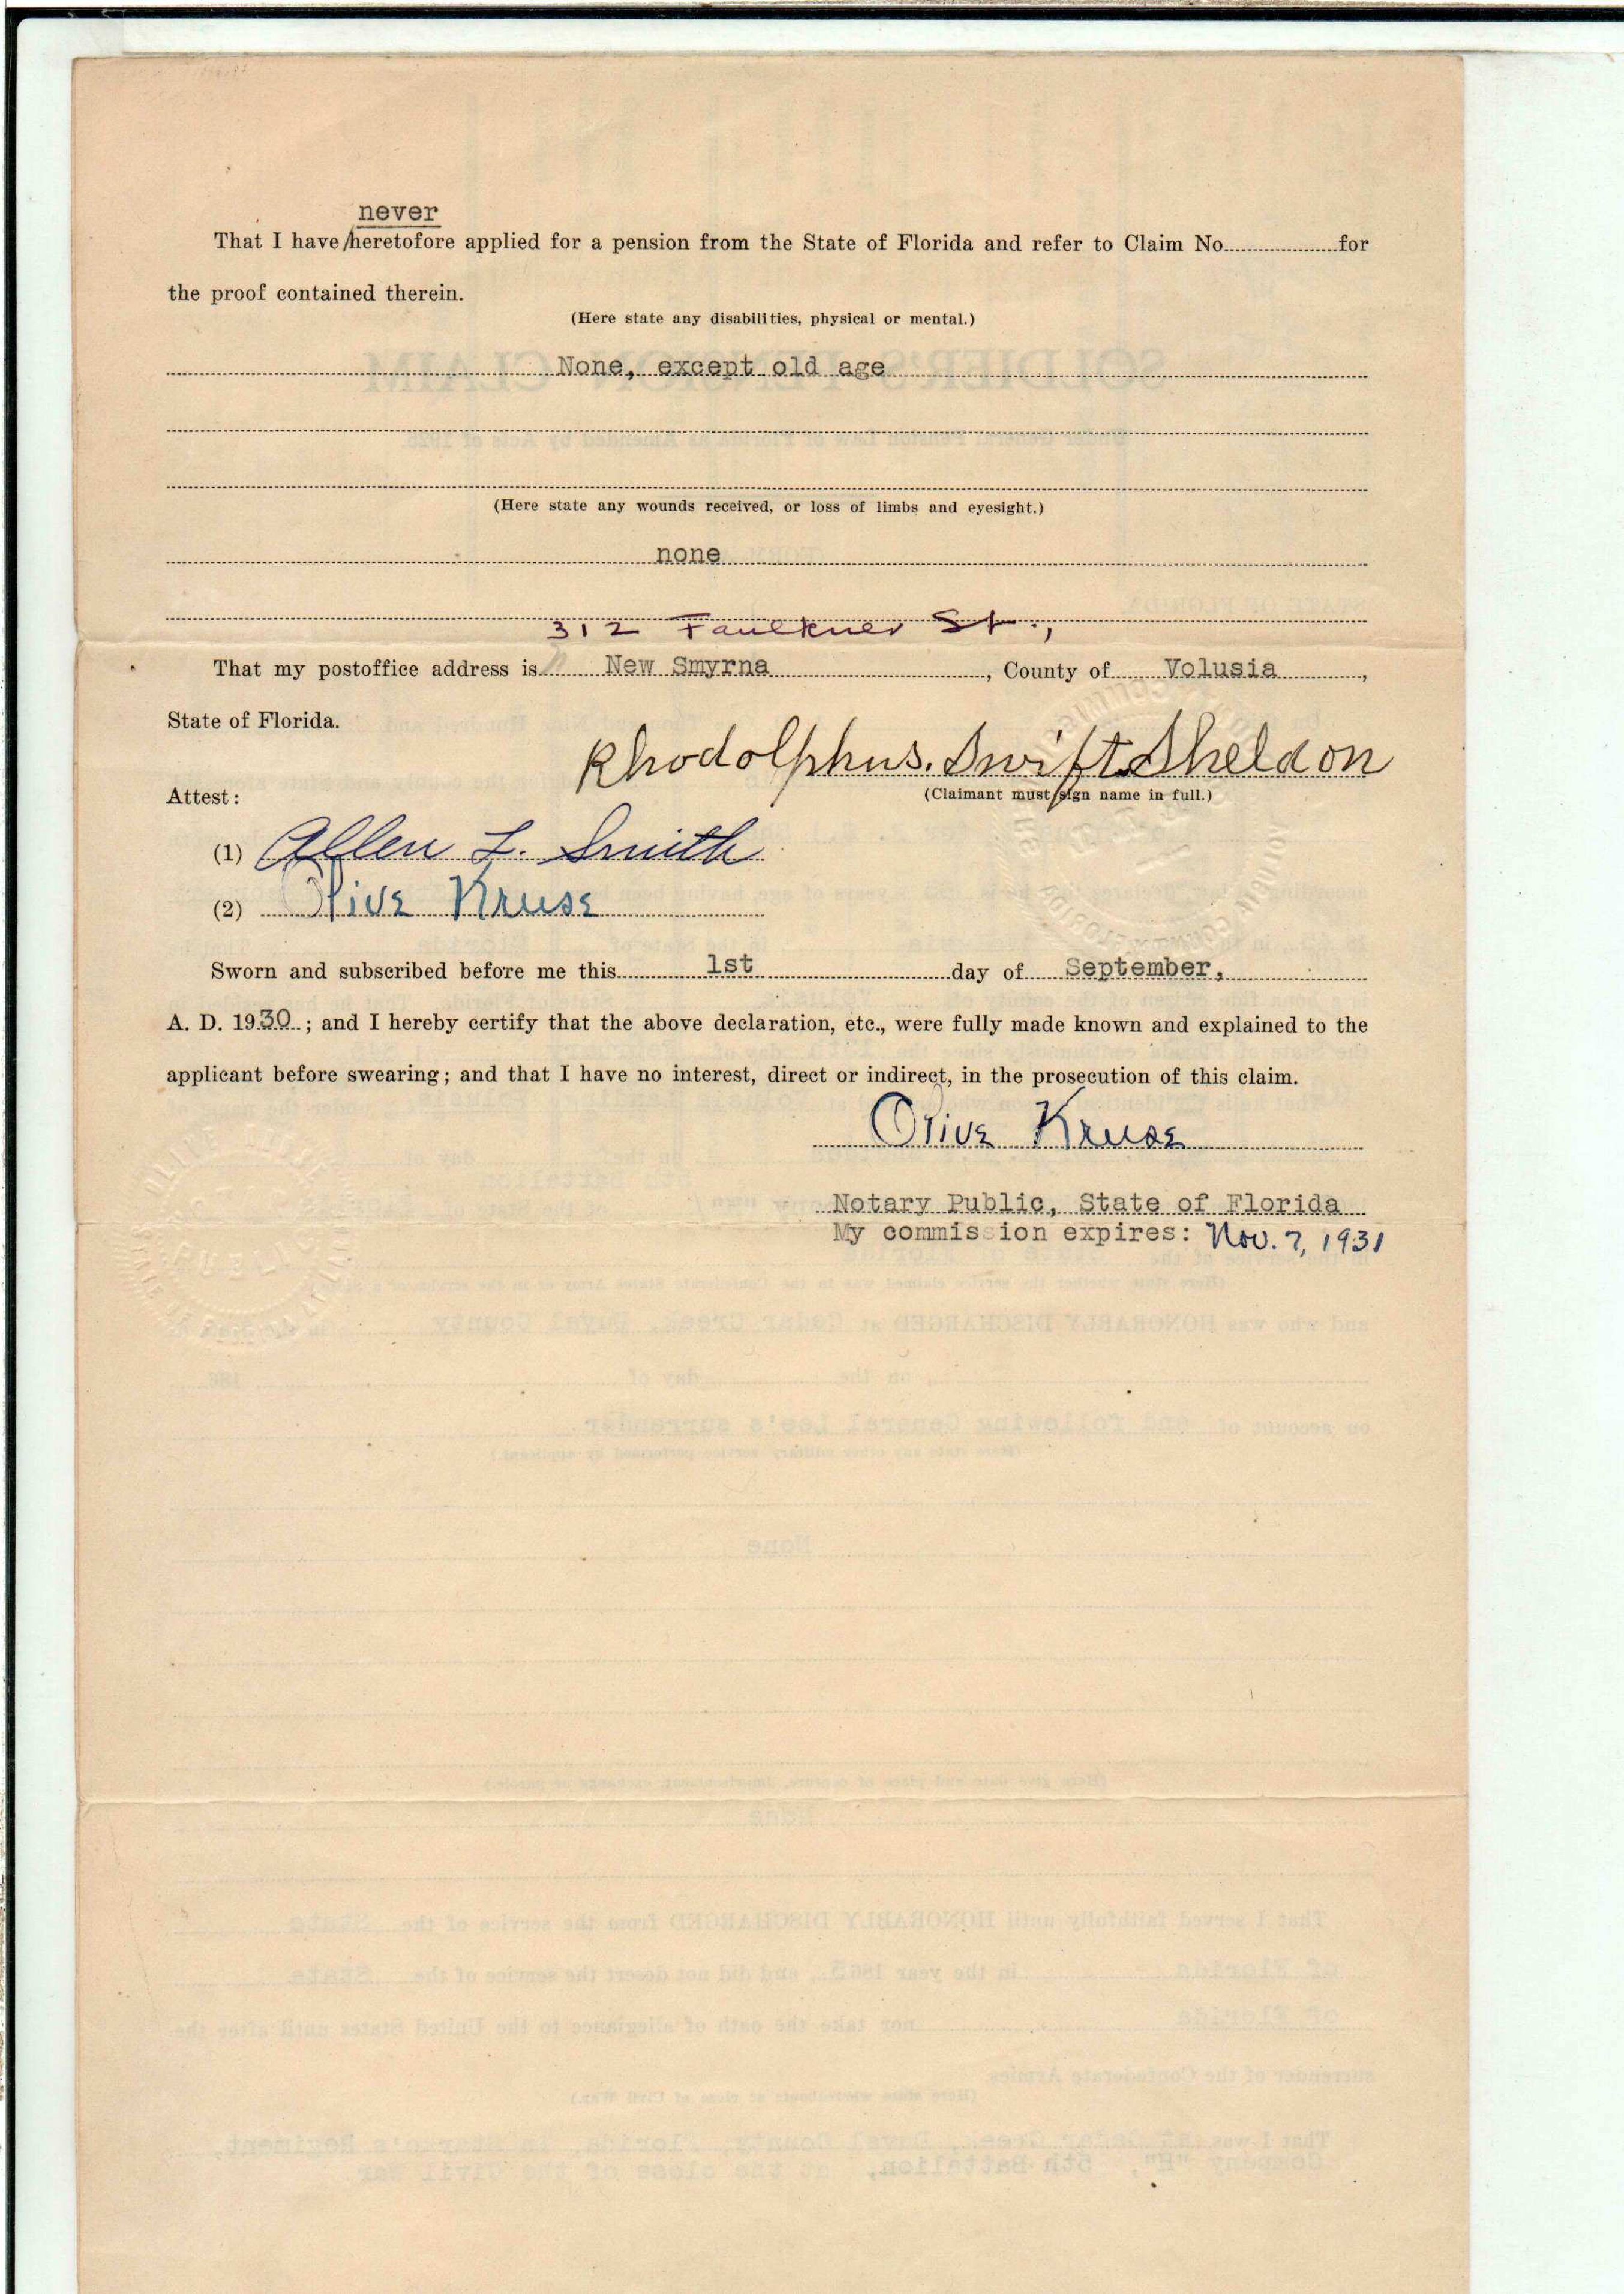 never
That I have/heretofore applied for a pension from the State of Florida and refer to Claim No..................for
the proof contained therein.
(Here state any disabilities, physical or mental.)
None, except old age
(Here state any wounds received, or loss of limbs and eyesight.)
none
312 Faulkner St.,
That my postoffice address is New Smyrna, County of Volusia,
State of Florida.
Rhodolphus. Swift Sheldon
Attest:
(Claimant must sign name in full.)
(1) Allen L. Smith
(2) Olive Kruse
Sworn and subscribed before me this 1st day of September,
A. D. 1930; and I hereby certify that the above declaration, etc., were fully made known and explained to the
applicant before swearing; and that I have no interest, direct or indirect, in the prosecution of this claim.
Olive Kruse
Notary Public, State of Florida
My commission expires: Nov. 7, 1931